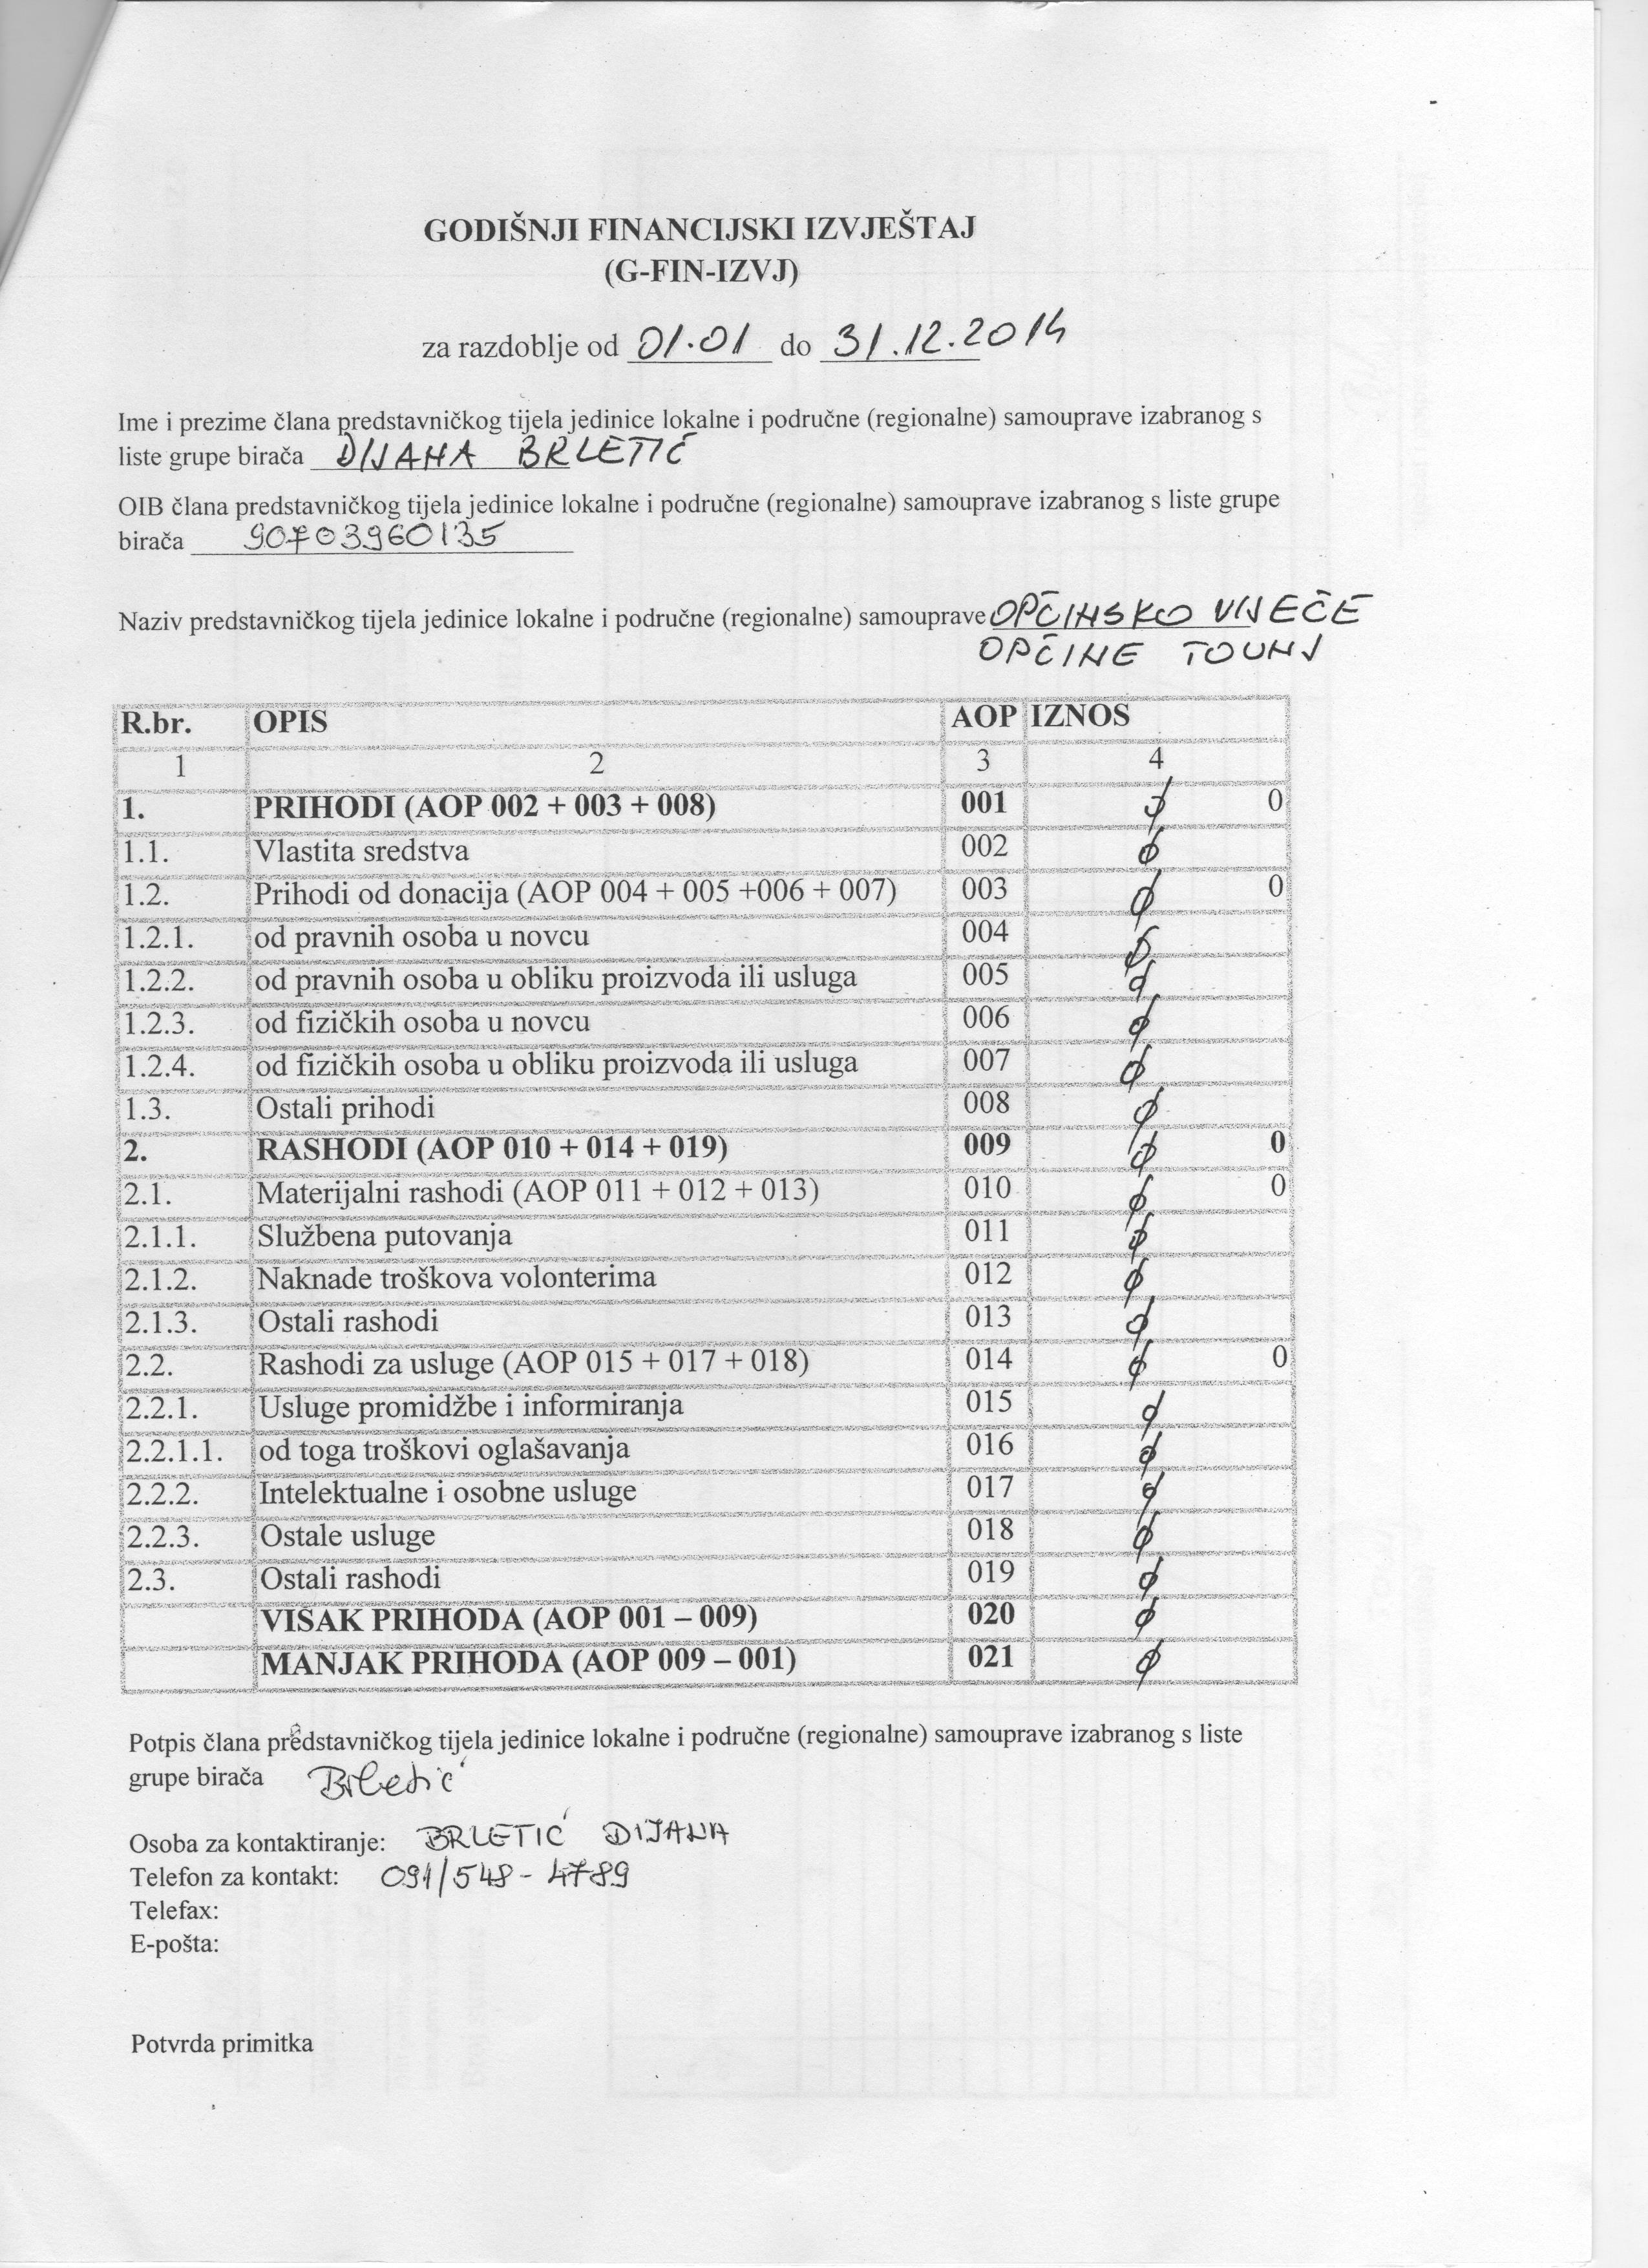 GODIŠNJI FINANCIJSKI IZVJEŠTAJ
(G-FIN-IZVJ)
za razdoblje od 01.01 do 31.12.2014
Ime i prezime člana predstavničkog tijela jedinice lokalne i područne (regionalne) samouprave izabranog s
liste grupe birača DIJANA BRLETIĆ
OIB člana predstavničkog tijela jedinice lokalne i područne (regionalne) samouprave izabranog s liste grupe
birača 90703960135
Naziv predstavničkog tijela jedinice lokalne i područne (regionalne) samouprave OPČINSKO VIJEČE
OPČINE TOUNJ
R.br. OPIS AOP IZNOS
1 2 3 4
1. PRIHODI (AOP 002 + 003 + 008) 001 ∅ 0
1.1. Vlastita sredstva 002 ∅
1.2. Prihodi od donacija (AOP 004 + 005 +006 + 007) 003 ∅ 0
1.2.1. od pravnih osoba u novcu 004 ∅
1.2.2. od pravnih osoba u obliku proizvoda ili usluga 005 ∅
1.2.3. od fizičkih osoba u novcu 006 ∅
1.2.4. od fizičkih osoba u obliku proizvoda ili usluga 007 ∅
1.3. Ostali prihodi 008 ∅
2. RASHODI (AOP 010 + 014 + 019) 009 ∅ 0
2.1. Materijalni rashodi (AOP 011 + 012 + 013) 010 ∅ 0
2.1.1. Službena putovanja 011 ∅
2.1.2. Naknade troškova volonterima 012 ∅
2.1.3. Ostali rashodi 013 ∅
2.2. Rashodi za usluge (AOP 015 + 017 + 018) 014 ∅ 0
2.2.1. Usluge promidžbe i informiranja 015 ∅
2.2.1.1. od toga troškovi oglašavanja 016 ∅
2.2.2. Intelektualne i osobne usluge 017 ∅
2.2.3. Ostale usluge 018 ∅
2.3. Ostali rashodi 019 ∅
VIŠAK PRIHODA (AOP 001 – 009) 020 ∅
MANJAK PRIHODA (AOP 009 – 001) 021 ∅
Potpis člana predstavničkog tijela jedinice lokalne i područne (regionalne) samouprave izabranog s liste
grupe birača Brletić
Osoba za kontaktiranje: BRLETIĆ DIJANA
Telefon za kontakt: 091/548-4789
Telefax:
E-pošta:
Potvrda primitka